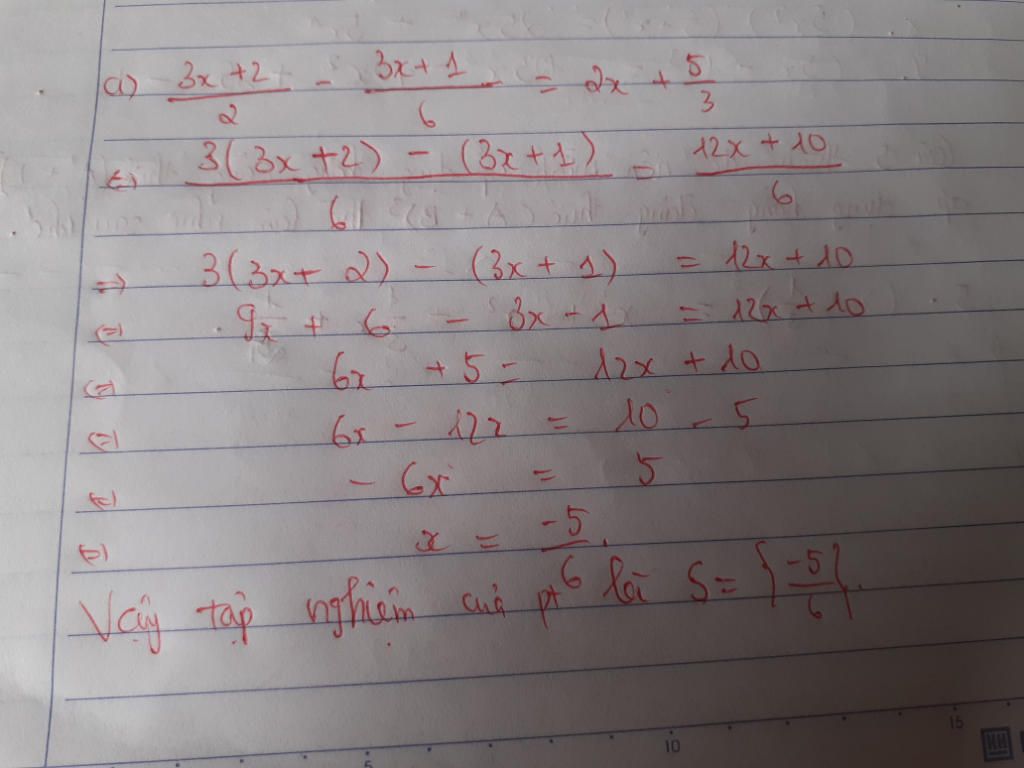 a) \frac{3x+2}{2} - \frac{3x+1}{6} = 2x + \frac{5}{3}
⇔ \frac{3(3x+2) - (3x+1)}{6} = \frac{12x+10}{6}
⇒ 3(3x+2) - (3x+1) = 12x+10
⇔ 9x + 6 - 3x - 1 = 12x+10
⇔ 6x + 5 = 12x + 10
⇔ 6x - 12x = 10 - 5
⇔ - 6x = 5
⇔ x = \frac{-5}{6}.
Vậy tập nghiệm của pt là S = {\frac{-5}{6}}.
5 10 15